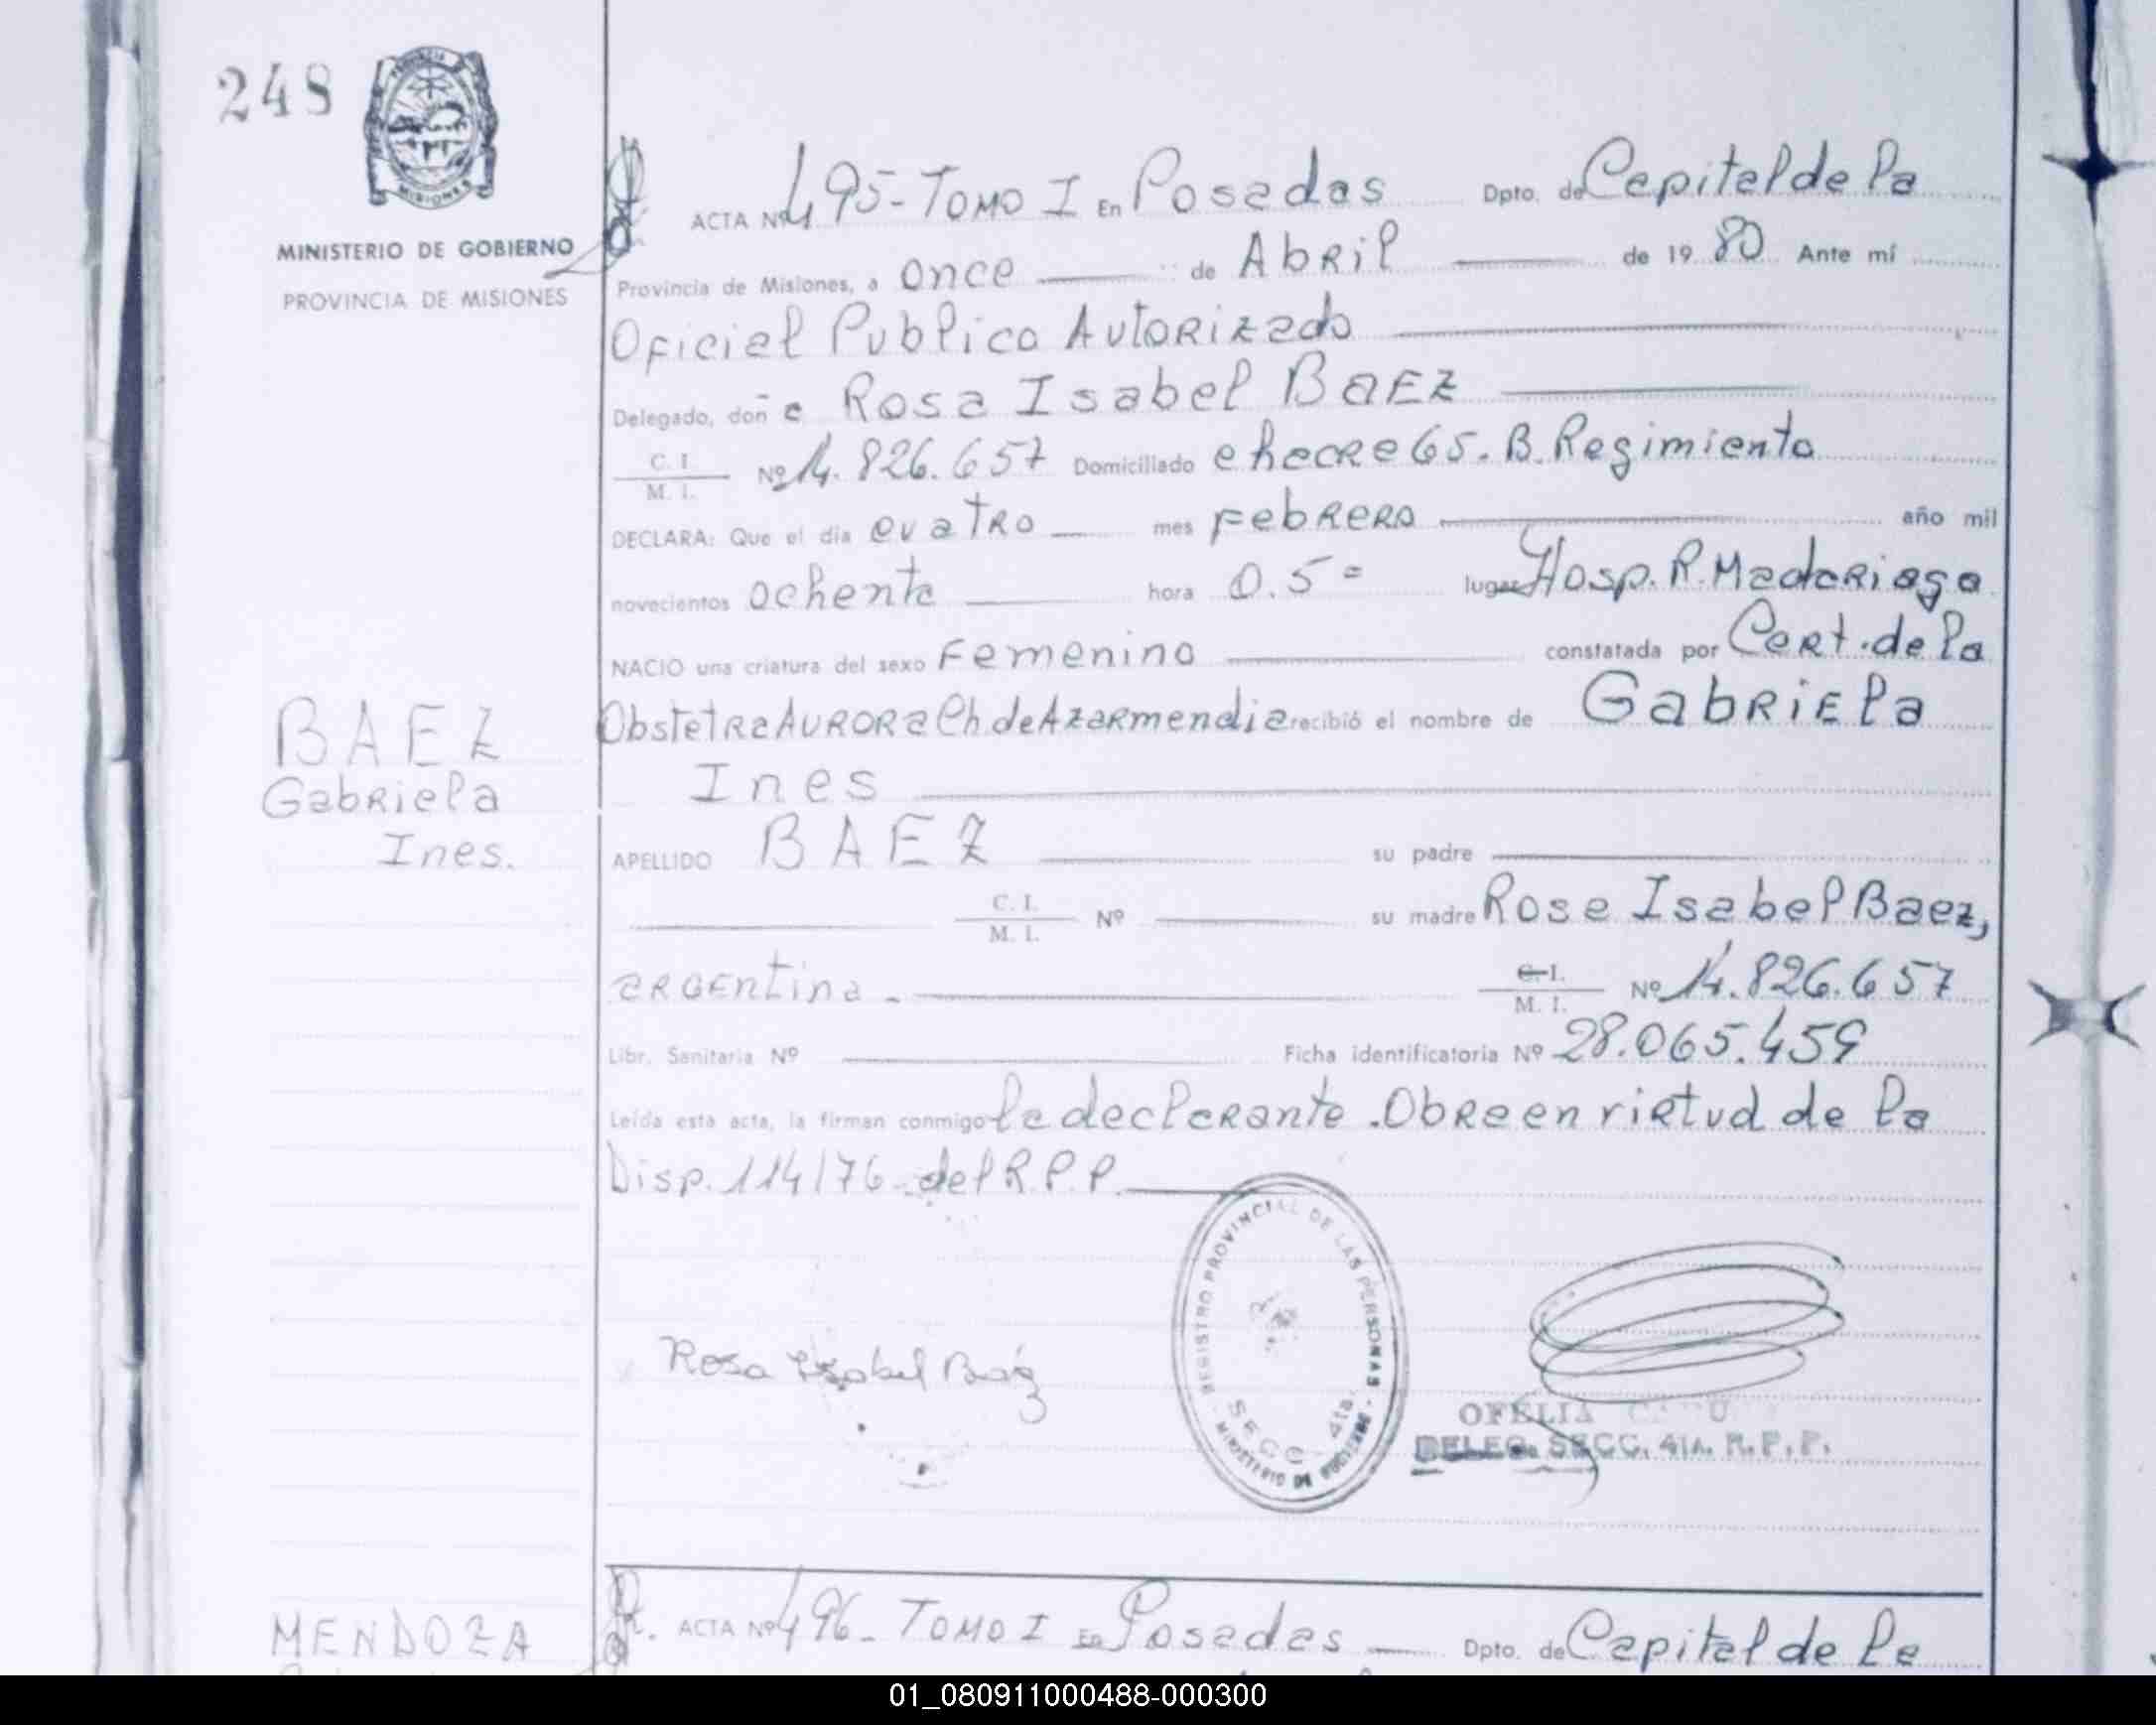 248
PROVINCIA
MISIONES
MINISTERIO DE GOBIERNO
PROVINCIA DE MISIONES
ACTA Nº 495-TOMO I En Posadas Dpto. de Capital de la
Provincia de Misiones, a once de Abril de 1980 Ante mí
Oficial Publico Autorizado
Delegado, doña Rosa Isabel BaEZ
C. I. / M. I. Nº 14.826.657 Domiciliado chacra 65. B. Regimiento
DECLARA: Que el día cuatro mes Febrero año mil
novecientos ochenta hora 0.5= lugar Hosp. R. Madariaga
NACIO una criatura del sexo Femenino constatada por Cert. de la
Obstetra Aurora Ch. de Azarmendia recibió el nombre de Gabriela
Ines
APELLIDO BAEZ su padre
C. I. / M. I. Nº su madre Rosa Isabel Baez,
argentina.- C. I. / M. I. Nº 14.826.657
Libr. Sanitaria Nº Ficha identificatoria Nº 28.065.459
Leída esta acta, la firman conmigo la declarante. Obra en virtud de la
Disp. 114/76 del R.P.P.
BAEZ
Gabriela
Ines.
Rosa Isabel Baéz
REGISTRO PROVINCIAL DE LAS PERSONAS
SECC. 4ta.
MINISTERIO DE GOBIERNO
OFELIA
DELEG. SECC. 4TA. R.P.P.
MENDOZA
ACTA Nº 496- TOMO I En Posadas Dpto. de Capital de la
01_080911000488-000300